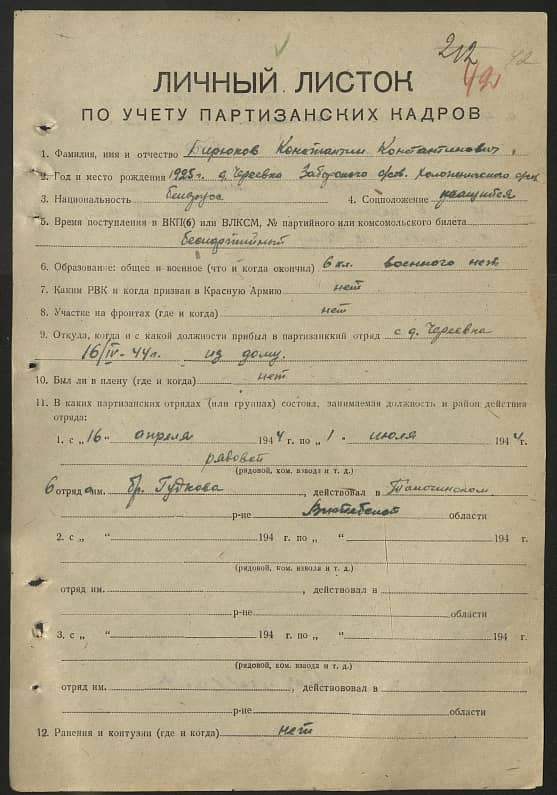 212 42
49
ЛИЧНЫЙ ЛИСТОК
ПО УЧЕТУ ПАРТИЗАНСКИХ КАДРОВ
1. Фамилия, имя и отчество Бирюков Константин Константинович.
2. Год и место рождения 1925г. д. Череевка
3. Национальность белорус 4. Соцположение учащийся
5. Время поступления в ВКП(б) или ВЛКСМ, № партийного или комсомольского билета
беспартийный
6. Образование: общее и военное (что и когда окончил) 6 кл. военного нет
7. Каким РВК и когда призван в Красную Армию нет
8. Участие на фронтах (где и когда) нет
9. Откуда, когда и с какой должности прибыл в партизанский отряд с д. Череевка
16/IV-44г. из дому.
10. Был ли в плену (где и когда) нет
11. В каких партизанских отрядах (или группах) состоял, занимаемая должность и район действия
отряда:
1. с „16“ апреля 1944 г. по „1.“ июля 1944г.
рядовой
(рядовой, ком. взвода и т. д.)
6 отряд им. бр. Гудкова, действовал в
р-не Витебской области
2. с „ “ 194 г. по „ “ 194 г.
(рядовой, ком. взвода и т. д.)
отряд им. , действовал в
р-не области
3. с „ “ 194 г. по „ “ 194 г.
(рядовой, ком. взвода и т. д.)
отряд им. , действововал в
р-не области
12. Ранения и контузии (где и когда) нет